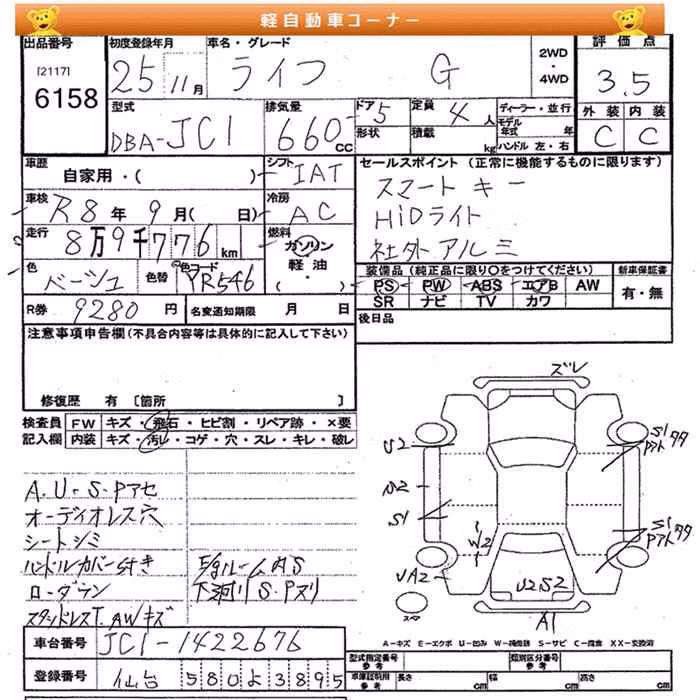 軽自動車コーナー
出品番号 初度登録年月 車名・グレード 2WD ・ 4WD 評価点
[2117]
6158
25年 11月 ライフ G 3.5
型式 DBA-JC1 排気量 660cc ドア 5 定員 4人 ディーラー・並行 外装 内装
形状 積載 kg モデル年式 年式 ハンドル 左・右 C C
車歴 自家用・( ) シフト IAT セールスポイント (正常に機能するものに限ります)
車検 R8年 9月( 日) 冷房 AC スマートキー
HiDライト
走行 8万9千776km 燃料 ガソリン 軽油・ 社外アルミ
色 ベージュ 色替 色コード YR546 装備品(純正品に限り○をつけてください) 新車保証書
PS PW ABS エアB AW 有・無
SR ナビ TV カワ
R券 9280円 名変通知期限 月 日 後日品
注意事項申告欄(不具合内容等は具体的に記入して下さい)
修復歴 有 [箇所 ]
検査員 FW キズ・飛石・ヒビ割・リペア跡・×要
記入欄 内装 キズ・汚レ・コゲ・穴・スレ・キレ・破レ
A.U-S.Pアセ
オーディオレス穴
シートシミ
ハンドルカバー付き E/gルームAS
ローダウン 下廻りS.Pヌリ
スタッドレスT.AWキズ
ズレ
U2 S1
S1
W2 S1
UA2 U2S2
スペア A1
A-キズ E-エクボ U-凹み W-補修跡 S-サビ C-腐食 XX-交換済
車台番号 JC1-1422676
登録番号 仙台 580よ3895
型式指定番号 参考 類別区分番号 参考
車庫証明用 参考 長さ cm 幅 cm 高さ cm